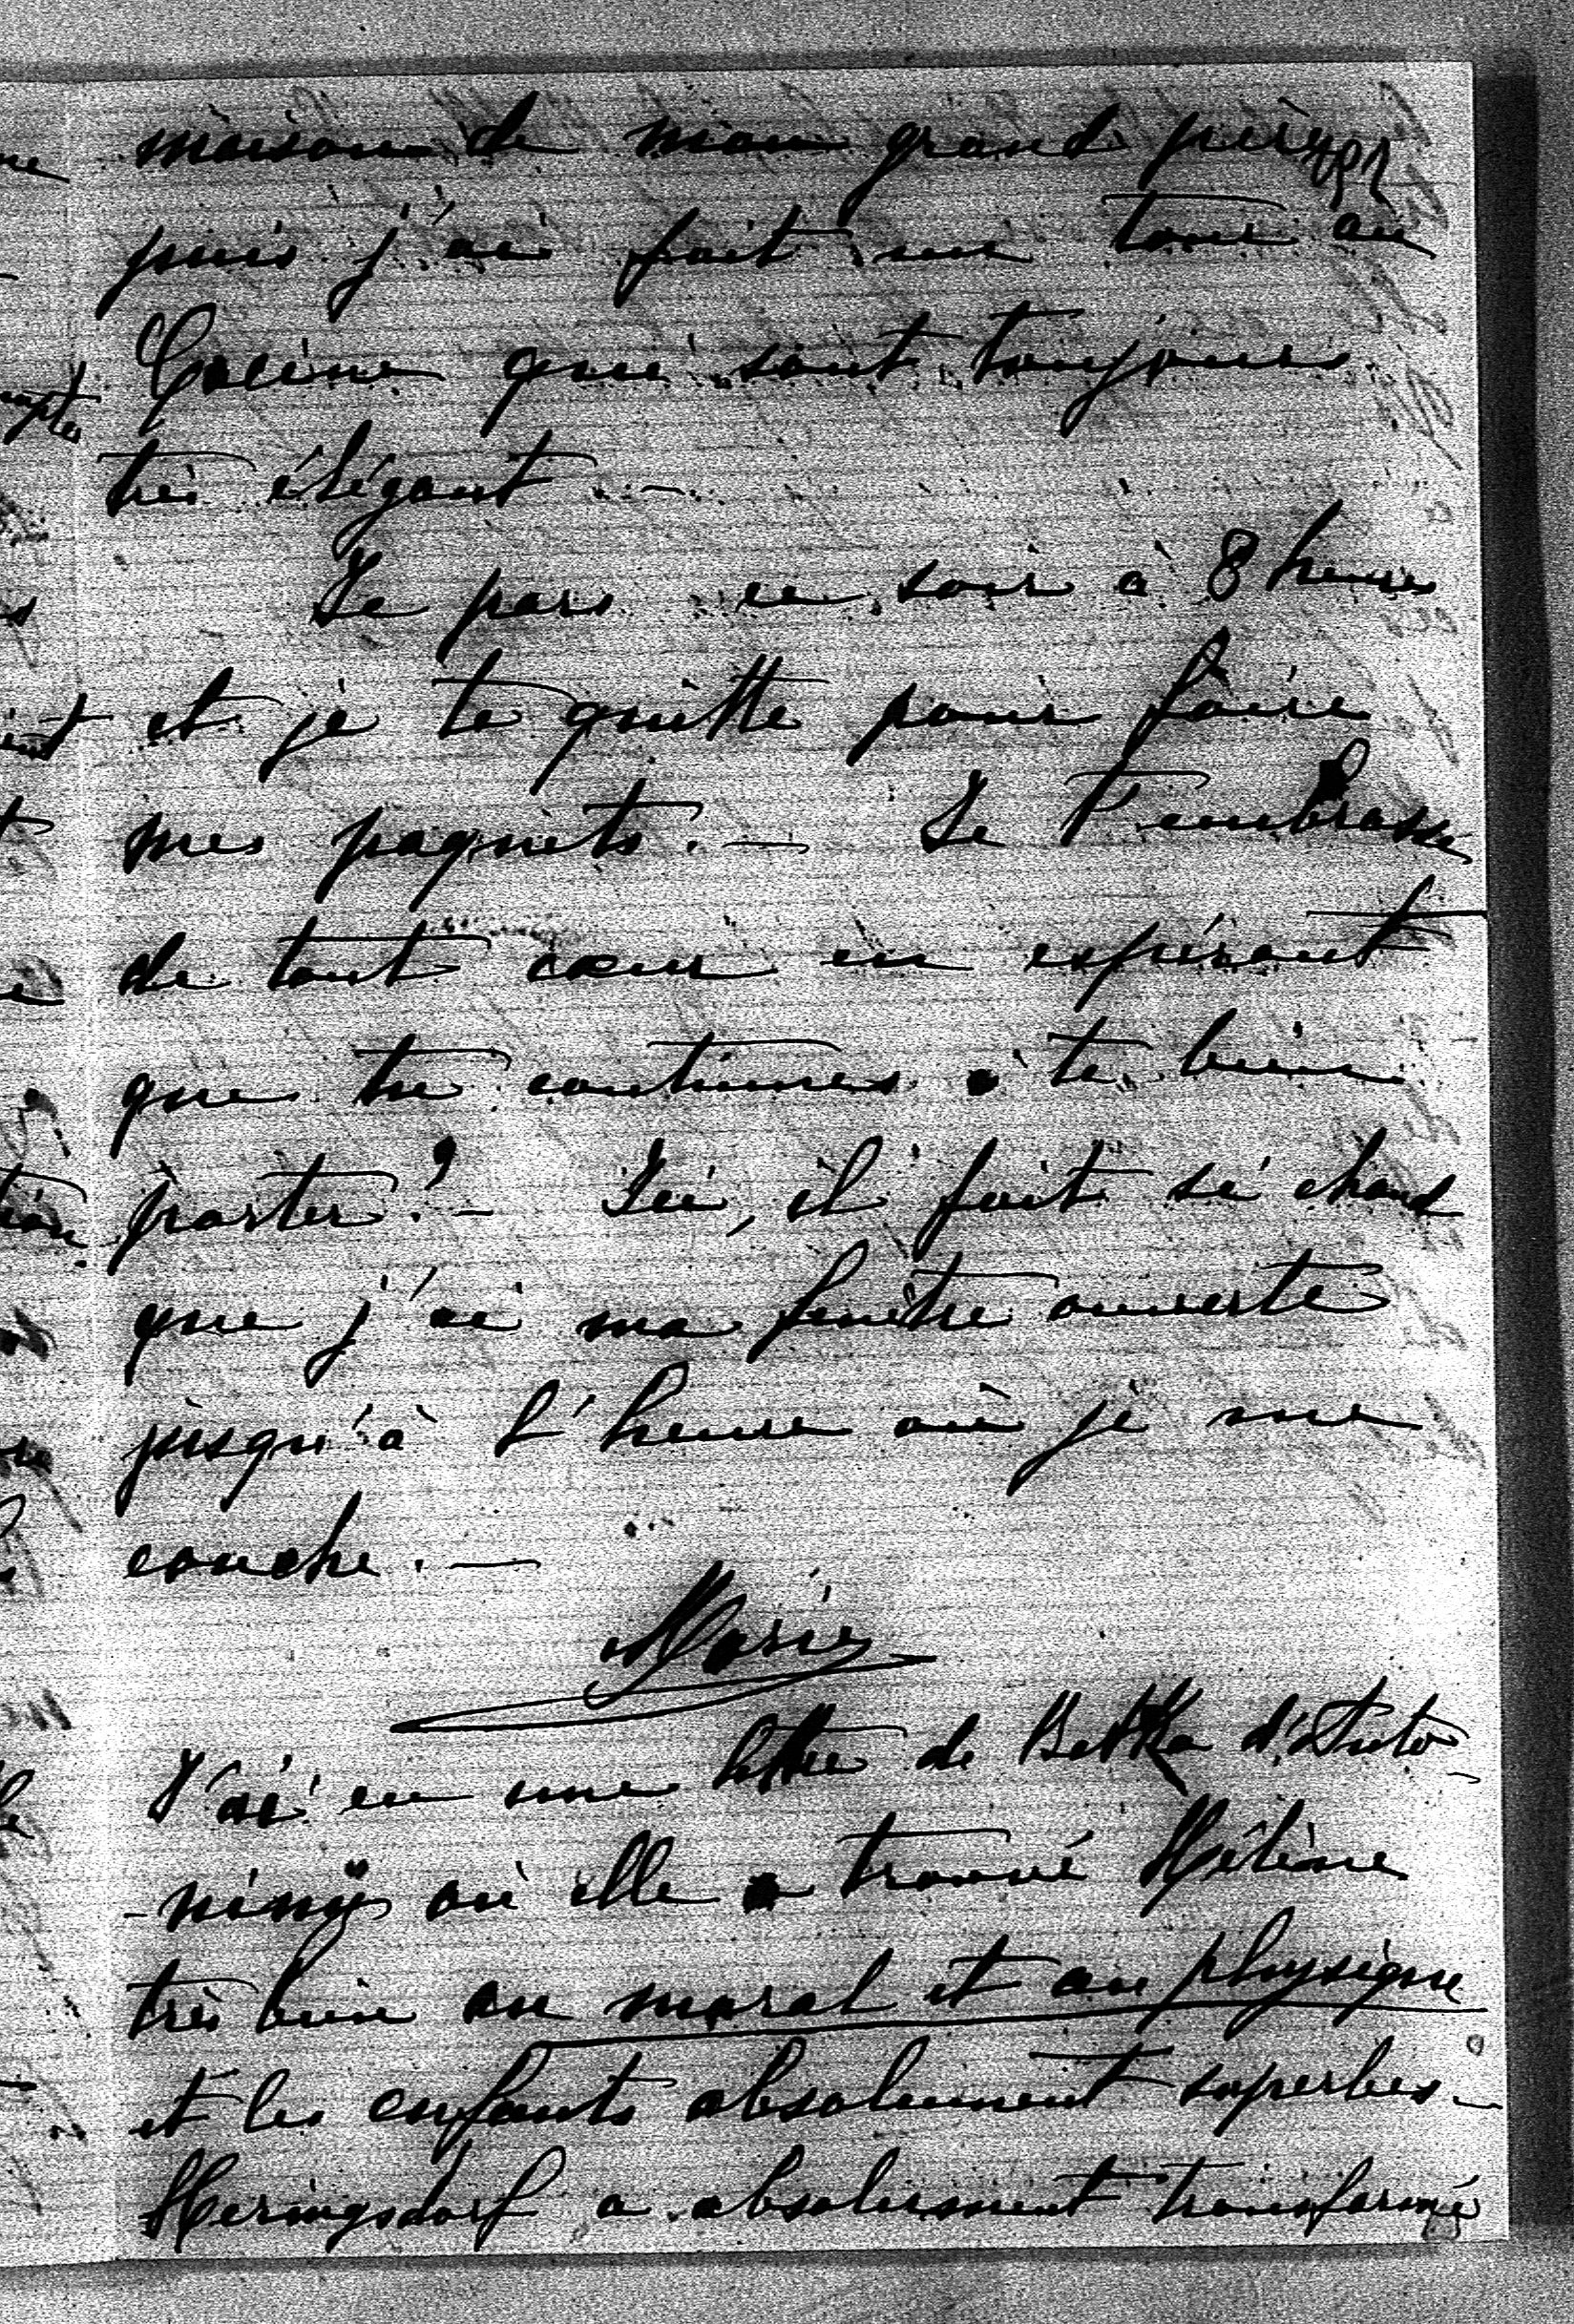 maison de mon grand père
puis j'ai fait un tour au
Casino qui sont toujours
très élégant. —
Je pars ce soir à 8 heures
et je te quitte pour faire
mes paquets. — Je t'embrasse
de tout cœur en espérant
que tu continues à te bien
porter? — Ici, il fait si chaud
que j'ai ma fenêtre ouverte
jusqu'à l'heure où je me
couche. —
Marie
J'ai eu une lettre de Betka d'Anto-
-niny où elle a trouvé Hélène
très bien au moral et au physique
et les enfants absolument superbes. —
Heringsdorf a absolument transformé